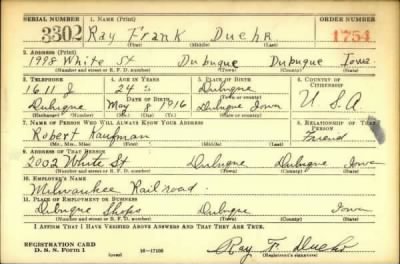 SERIAL NUMBER 1. NAME (Print) ORDER NUMBER
3302 Ray Frank Duehr 1754
(First) (Middle) (Last)
2. ADDRESS (Print)
1998 White St Dubuque Dubuque Iowa
(Number and street or R. F. D. number) (Town) (County) (State)
3. TELEPHONE 4. AGE IN YEARS 5. PLACE OF BIRTH 6. COUNTRY OF CITIZENSHIP
1611 J 24 Dubuque
DATE OF BIRTH (Town or county)
Dubuque May 8 1916 Dubuque Iowa U S A
(Exchange) (Number) (Mo.) (Day) (Yr.) (State or country)
7. NAME OF PERSON WHO WILL ALWAYS KNOW YOUR ADDRESS 8. RELATIONSHIP OF THAT PERSON
Robert Kaufman Friend
(Mr., Mrs., Miss) (First) (Middle) (Last)
9. ADDRESS OF THAT PERSON
2002 White St Dubuque Dubuque Iowa
(Number and street or R. F. D. number) (Town) (County) (State)
10. EMPLOYER'S NAME
Milwaukee Railroad.
11. PLACE OF EMPLOYMENT OR BUSINESS
Dubuque Shops Dubuque Iowa
(Number and street or R. F. D. number) (Town) (County) (State)
I AFFIRM THAT I HAVE VERIFIED ABOVE ANSWERS AND THAT THEY ARE TRUE.
REGISTRATION CARD
D. S. S. Form 1 (over) Ray F. Duehr
(Registrant's signature)